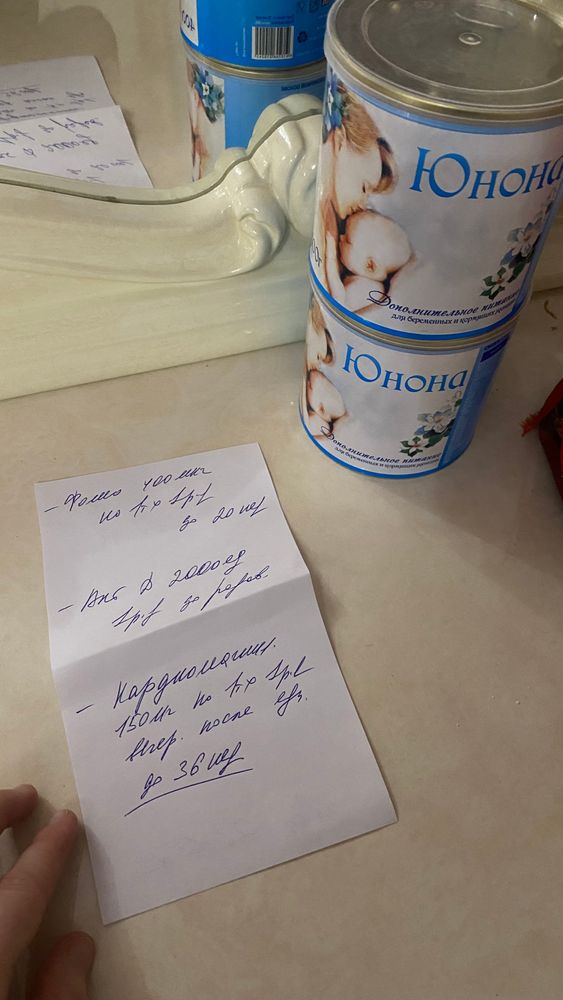 Юнона
Дополнительное питание
для беременных и кормящих женщин
Юнона
Дополнительное питание
для беременных и кормящих женщин
- Фолио 400 мкг
по 1т х 1р/д
до 20 нед
- Вит Д 2000 ед
1р/д до родов.
- Кардиомагнил.
150 мг по 1т х 1р/д
вечер. после еды.
до 36 нед